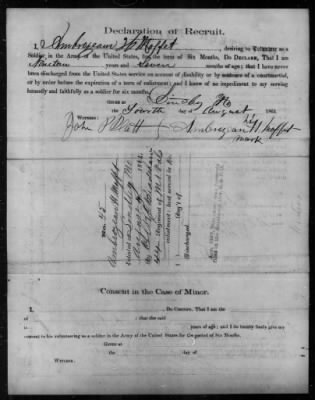 Declaration of Recruit.
I, Ambrogean H Moffet, desiring to VOLUNTEER as a
Soldier in the Army of the United States, for the term of Six Months, DO DECLARE, That I am
years and Seven months of age; that I have never
been discharged from the United States service on account of disability or by sentence of a court-martial,
or by order before the expiration of a term of enlistment; and I know of no impediment to my serving
honestly and faithfully as a soldier for six months.
GIVEN at Lindley Mo
The Fourth day of August 186
WITNESS:
John P Platt Ambrogean his H Moffet
mark
No. 45
Ambrogean H Moffet
Lindley Mo
August 4
Regiment of
enlistment; last served in Co.
Reg't of
Discharged
CONSENT IN THE CASE OF MINOR.
I, DO CERTIFY, That I am the
of ; that the said
years of age; and I do hereby freely give my
consent to his volunteering as a soldier in the Army of the United States for the period of Six Months.
GIVEN at
the day of
WITNESS: